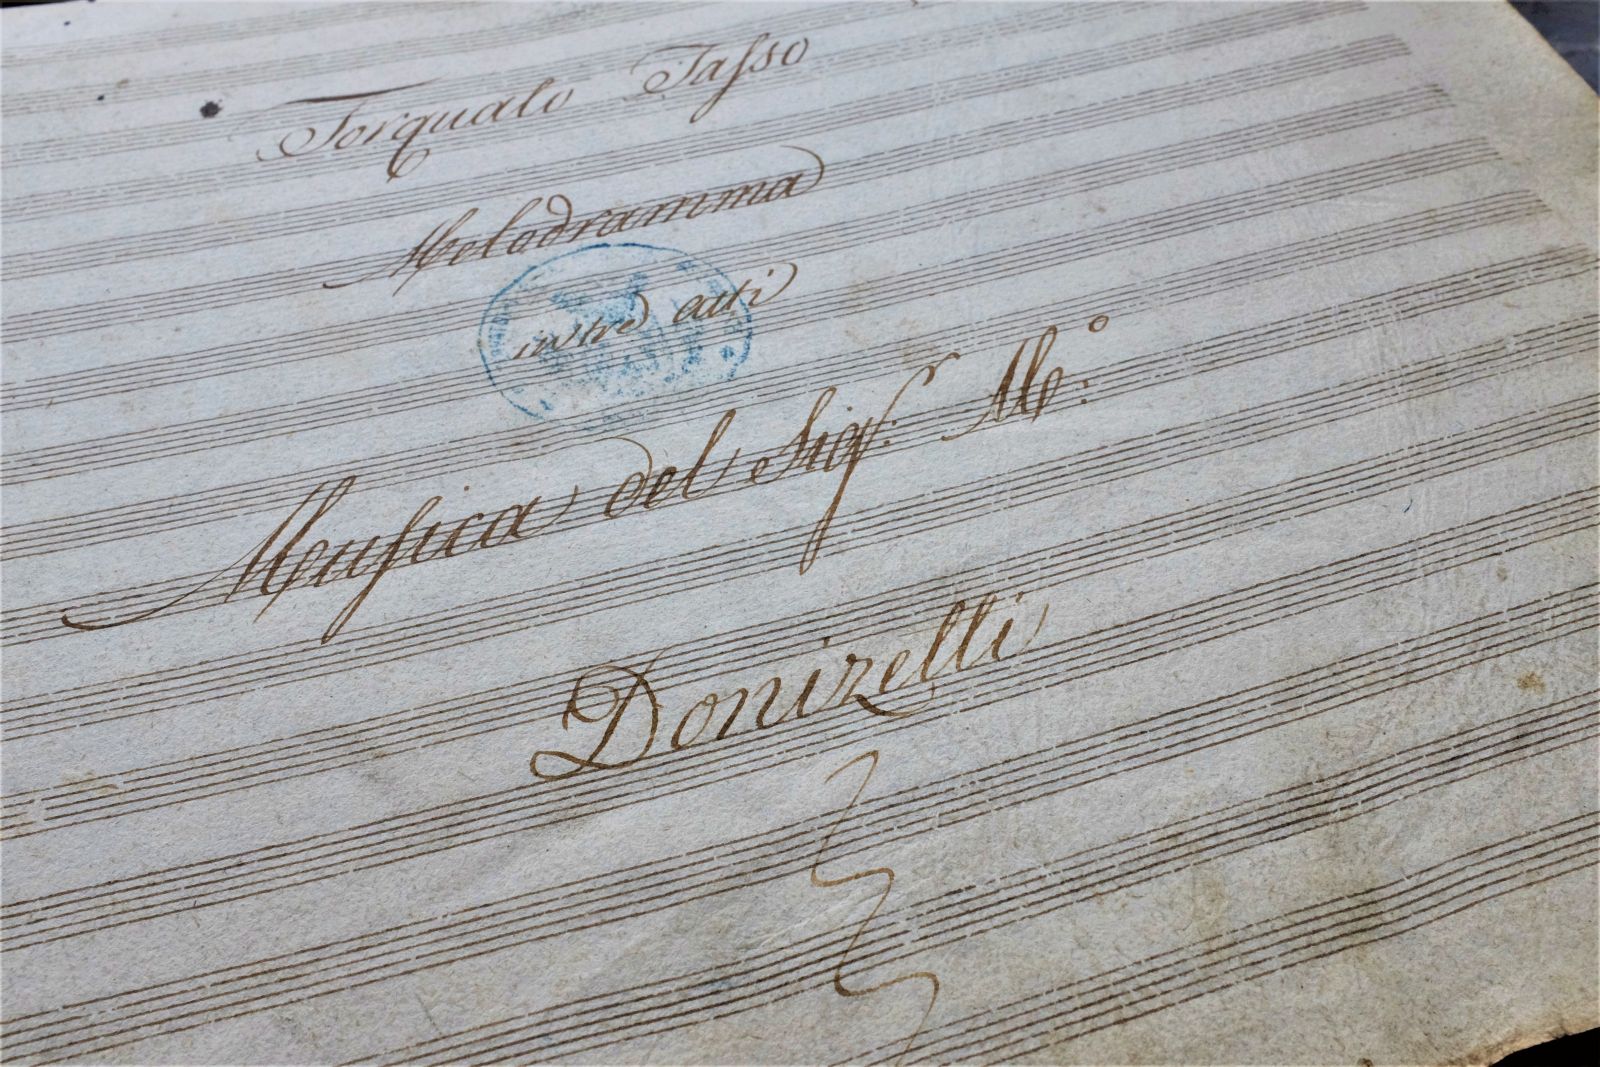 Torquato Tasso
Melodramma
in tre atti
Musica del Sigr: M:o
Donizetti